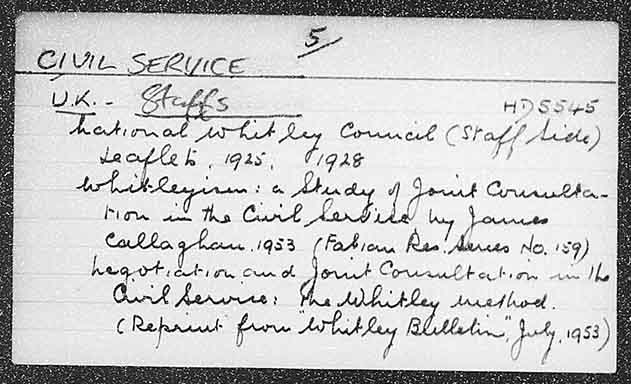 5/
CIVIL SERVICE
U.K. - Staffs
HD5545
National Whitley Council (Staff Side)
Leaflets, 1925, 1928
Whitleyism: a Study of Joint Consulta-
tion in the Civil Service, by James
Callaghan. 1953 (Fabian Res. Series No. 159)
Negotiation and Joint Consultation in the
Civil Service: the Whitley method.
(Reprint from "Whitley Bulletin", July, 1953)